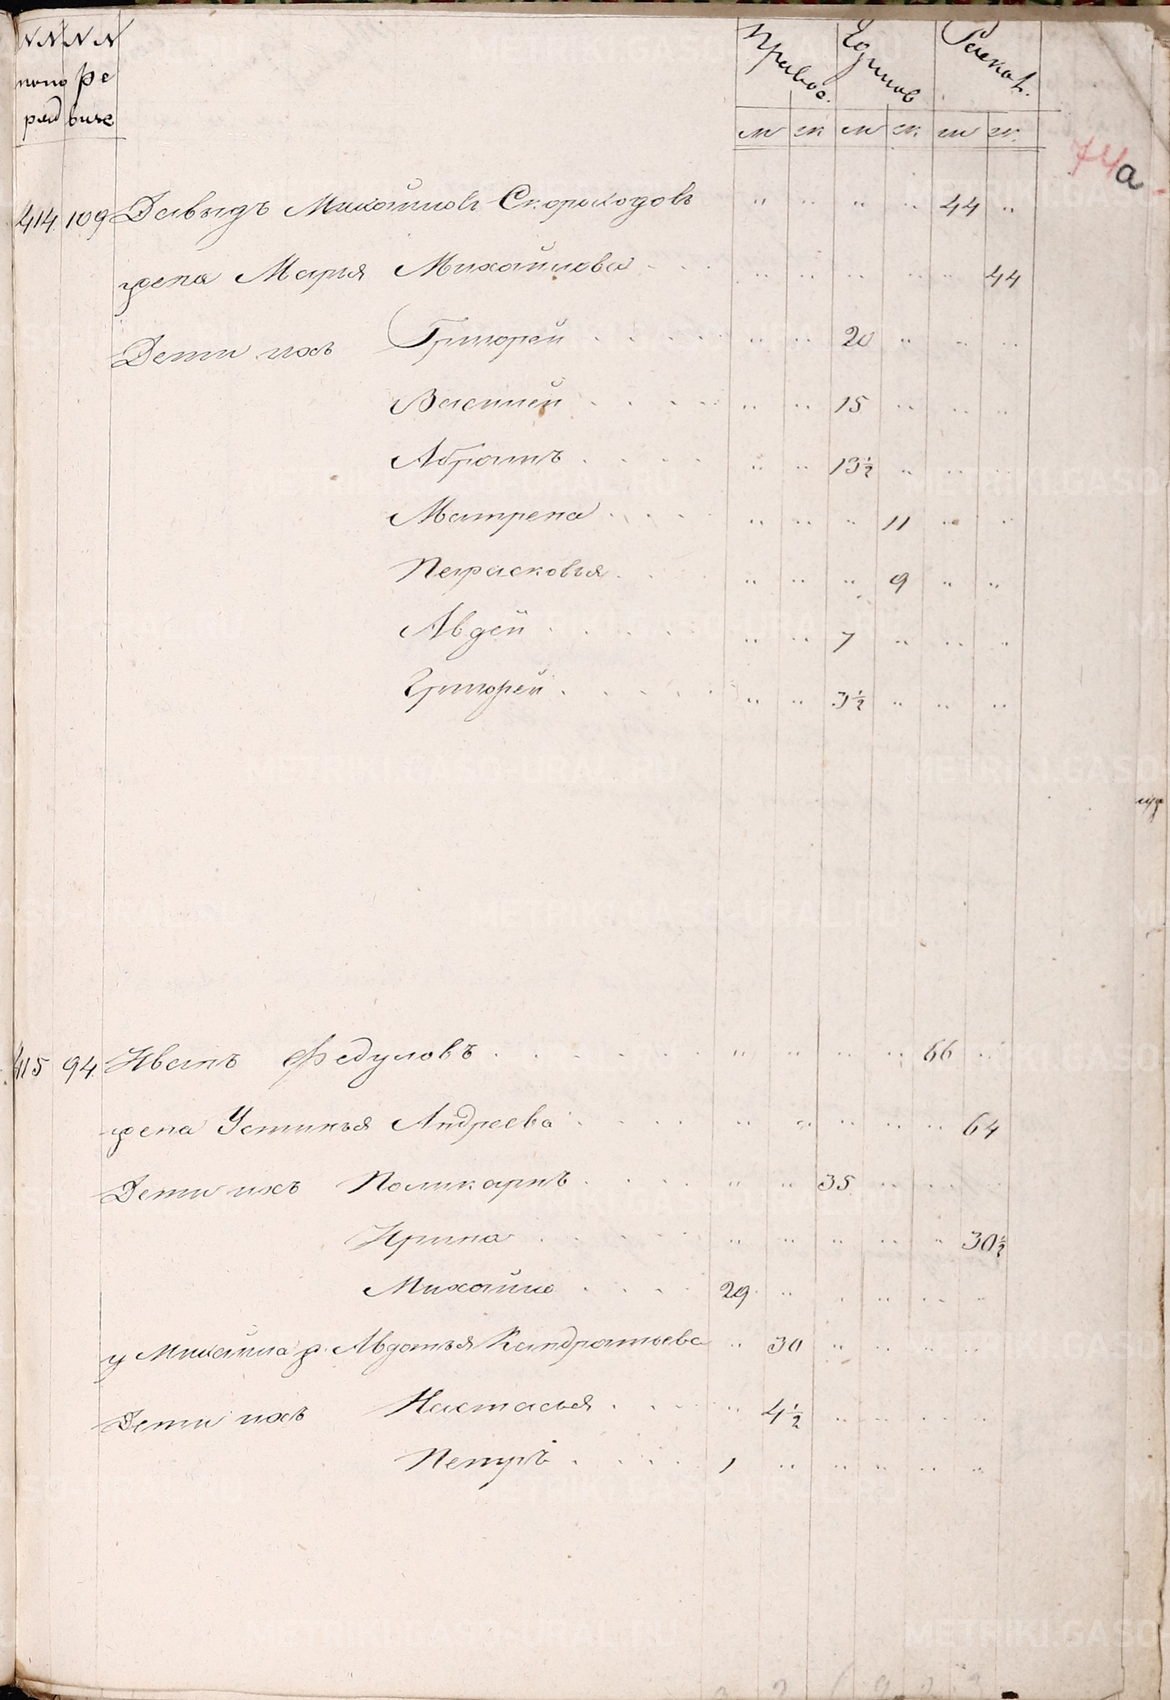 NN NN
Правос. Единов Раскол.
по по ре
ряд визе
м ж м ж м ж
74а
414 109 Давыдъ Михайловъ Скороходовъ " " " " 44 "
жена Марья Михайлова " " " " " 44
Дети ихъ Григорей " " 20 " " "
Василей " " 15 " " "
Абрамъ " " 13½ " " "
Матрена " " " 11 " "
Парасковья " " " 9 " "
Авдей " " 7 " " "
Григорей " " 3½ " " "
415 94 Иванъ Федуловъ " " " " 66 "
жена Устинья Андреева " " " " " 64
Дети ихъ Поликарпъ " " 35 " " "
Ирина " " " " " 30½
Михайло 29 " " " " "
у Михайла ж. Авдотья Кандратьева " 30 " " " "
Дети ихъ Настасья " 4½ " " " "
Петръ 1 " " " " "
METRIKI.GASO-URAL.RU